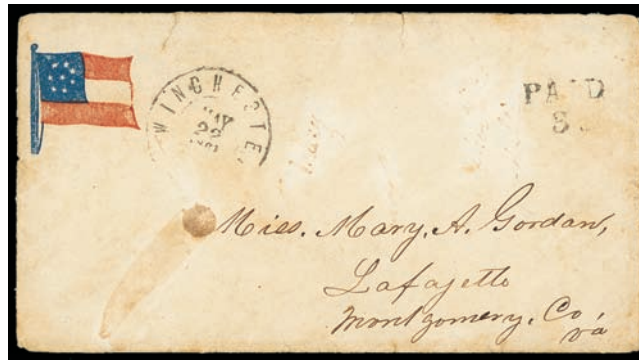 WINCHESTE
MAY
22
1861
PAID
Miss. Mary. A. Gordan,
Lafayette
Montgomery. Co,
Va